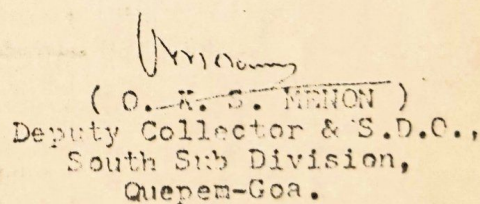 ( O. K. S. MENON )
Deputy Collector & S.D.O.,
South Sub Division,
Quepem-Goa.